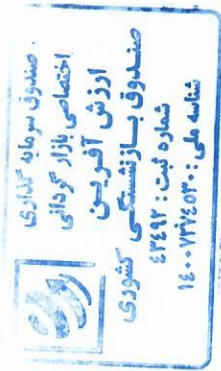 صندوق سرمایه گذاری
اختصاصی بازار گردانی
ارزش آفرین
صندوق بازنشستگی کشوری
شماره ثبت: ۴۳۴۹۲
شناسه ملی: ۱۴۰۰۷۳۷۴۵۳۰